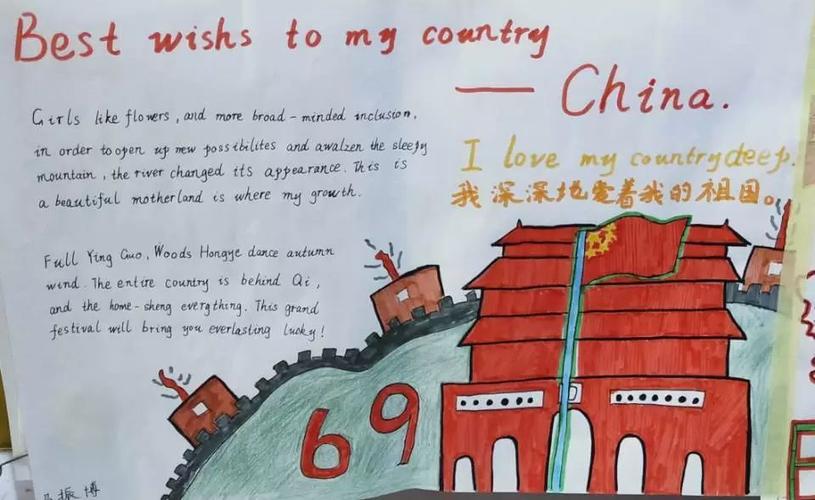 Best wishs to my country
— China.
Girls like flowers, and more broad-minded inclusion,
in order to open up new possibilites and awalzen the sleepy
mountain, the river changed its appearance. This is
a beautiful motherland is where my growth.
I love my country deep.
我深深地爱着我的祖国。
Full Ying Guo, Woods Hongye dance autumn
wind. The entire country is behind Qi,
and the home-sheng everything. This grand
festival will bring you everlasting lucky!
69
振博